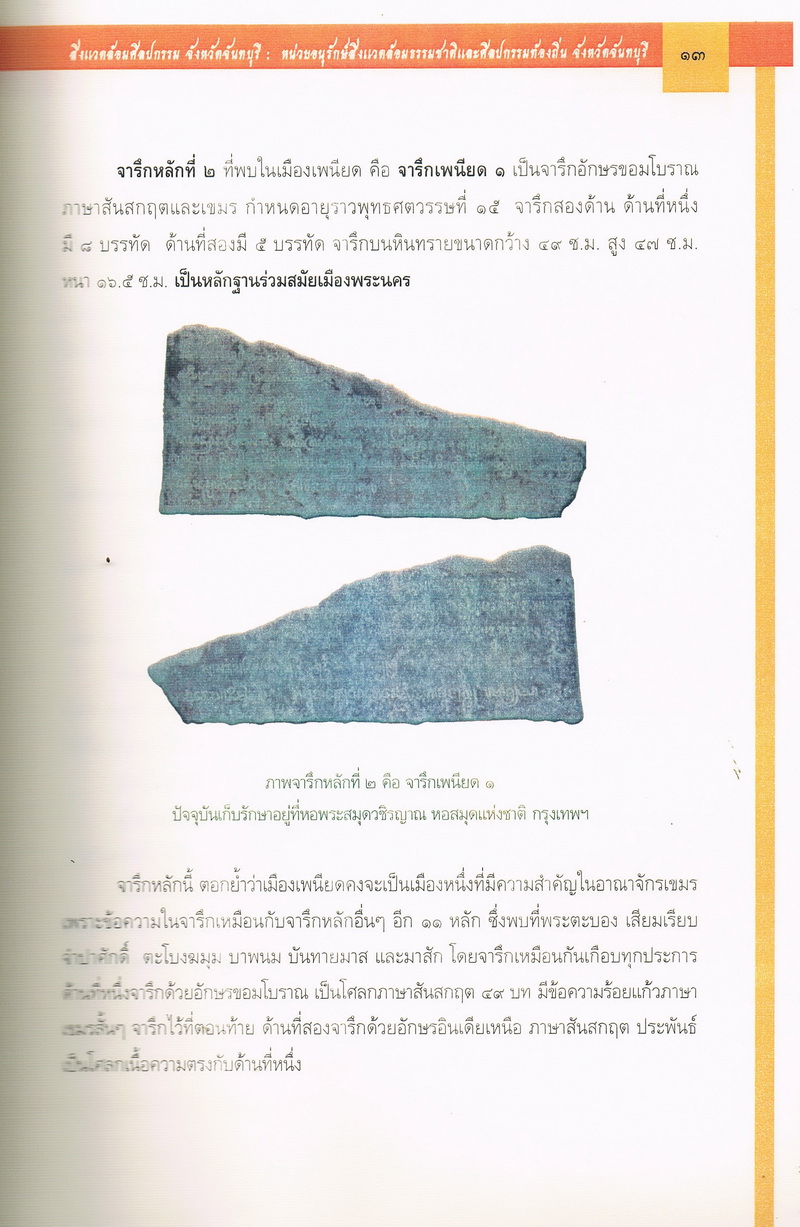 สิ่งแวดล้อมศิลปกรรม จังหวัดจันทบุรี : หน่วยอนุรักษ์สิ่งแวดล้อมธรรมชาติและศิลปกรรมท้องถิ่น จังหวัดจันทบุรี
๑๓
จารึกหลักที่ ๒ ที่พบในเมืองเพนียด คือ จารึกเพนียด ๑ เป็นจารึกอักษรขอมโบราณ
ภาษาสันสกฤตและเขมร กำหนดอายุราวพุทธศตวรรษที่ ๑๕ จารึกสองด้าน ด้านที่หนึ่ง
มี ๘ บรรทัด ด้านที่สองมี ๕ บรรทัด จารึกบนหินทรายขนาดกว้าง ๔๙ ซ.ม. สูง ๔๗ ซ.ม.
หนา ๑๖.๕ ซ.ม. เป็นหลักฐานร่วมสมัยเมืองพระนคร
ภาพจารึกหลักที่ ๒ คือ จารึกเพนียด ๑
ปัจจุบันเก็บรักษาอยู่ที่หอพระสมุดวชิรญาณ หอสมุดแห่งชาติ กรุงเทพฯ
จารึกหลักนี้ ตอกย้ำว่าเมืองเพนียดคงจะเป็นเมืองหนึ่งที่มีความสำคัญในอาณาจักรเขมร
เพราะข้อความในจารึกเหมือนกับจารึกหลักอื่นๆ อีก ๑๑ หลัก ซึ่งพบที่พระตะบอง เสียมเรียบ
จำปาศักดิ์ ตะโบงฆมุม บาพนม บันทายมาส และมาสัก โดยจารึกเหมือนกันเกือบทุกประการ
ด้านที่หนึ่งจารึกด้วยอักษรขอมโบราณ เป็นโศลกภาษาสันสกฤต ๔๙ บท มีข้อความร้อยแก้วภาษา
เขมรสั้นๆ จารึกไว้ที่ตอนท้าย ด้านที่สองจารึกด้วยอักษรอินเดียเหนือ ภาษาสันสกฤต ประพันธ์
เป็นโศลกเนื้อความตรงกับด้านที่หนึ่ง